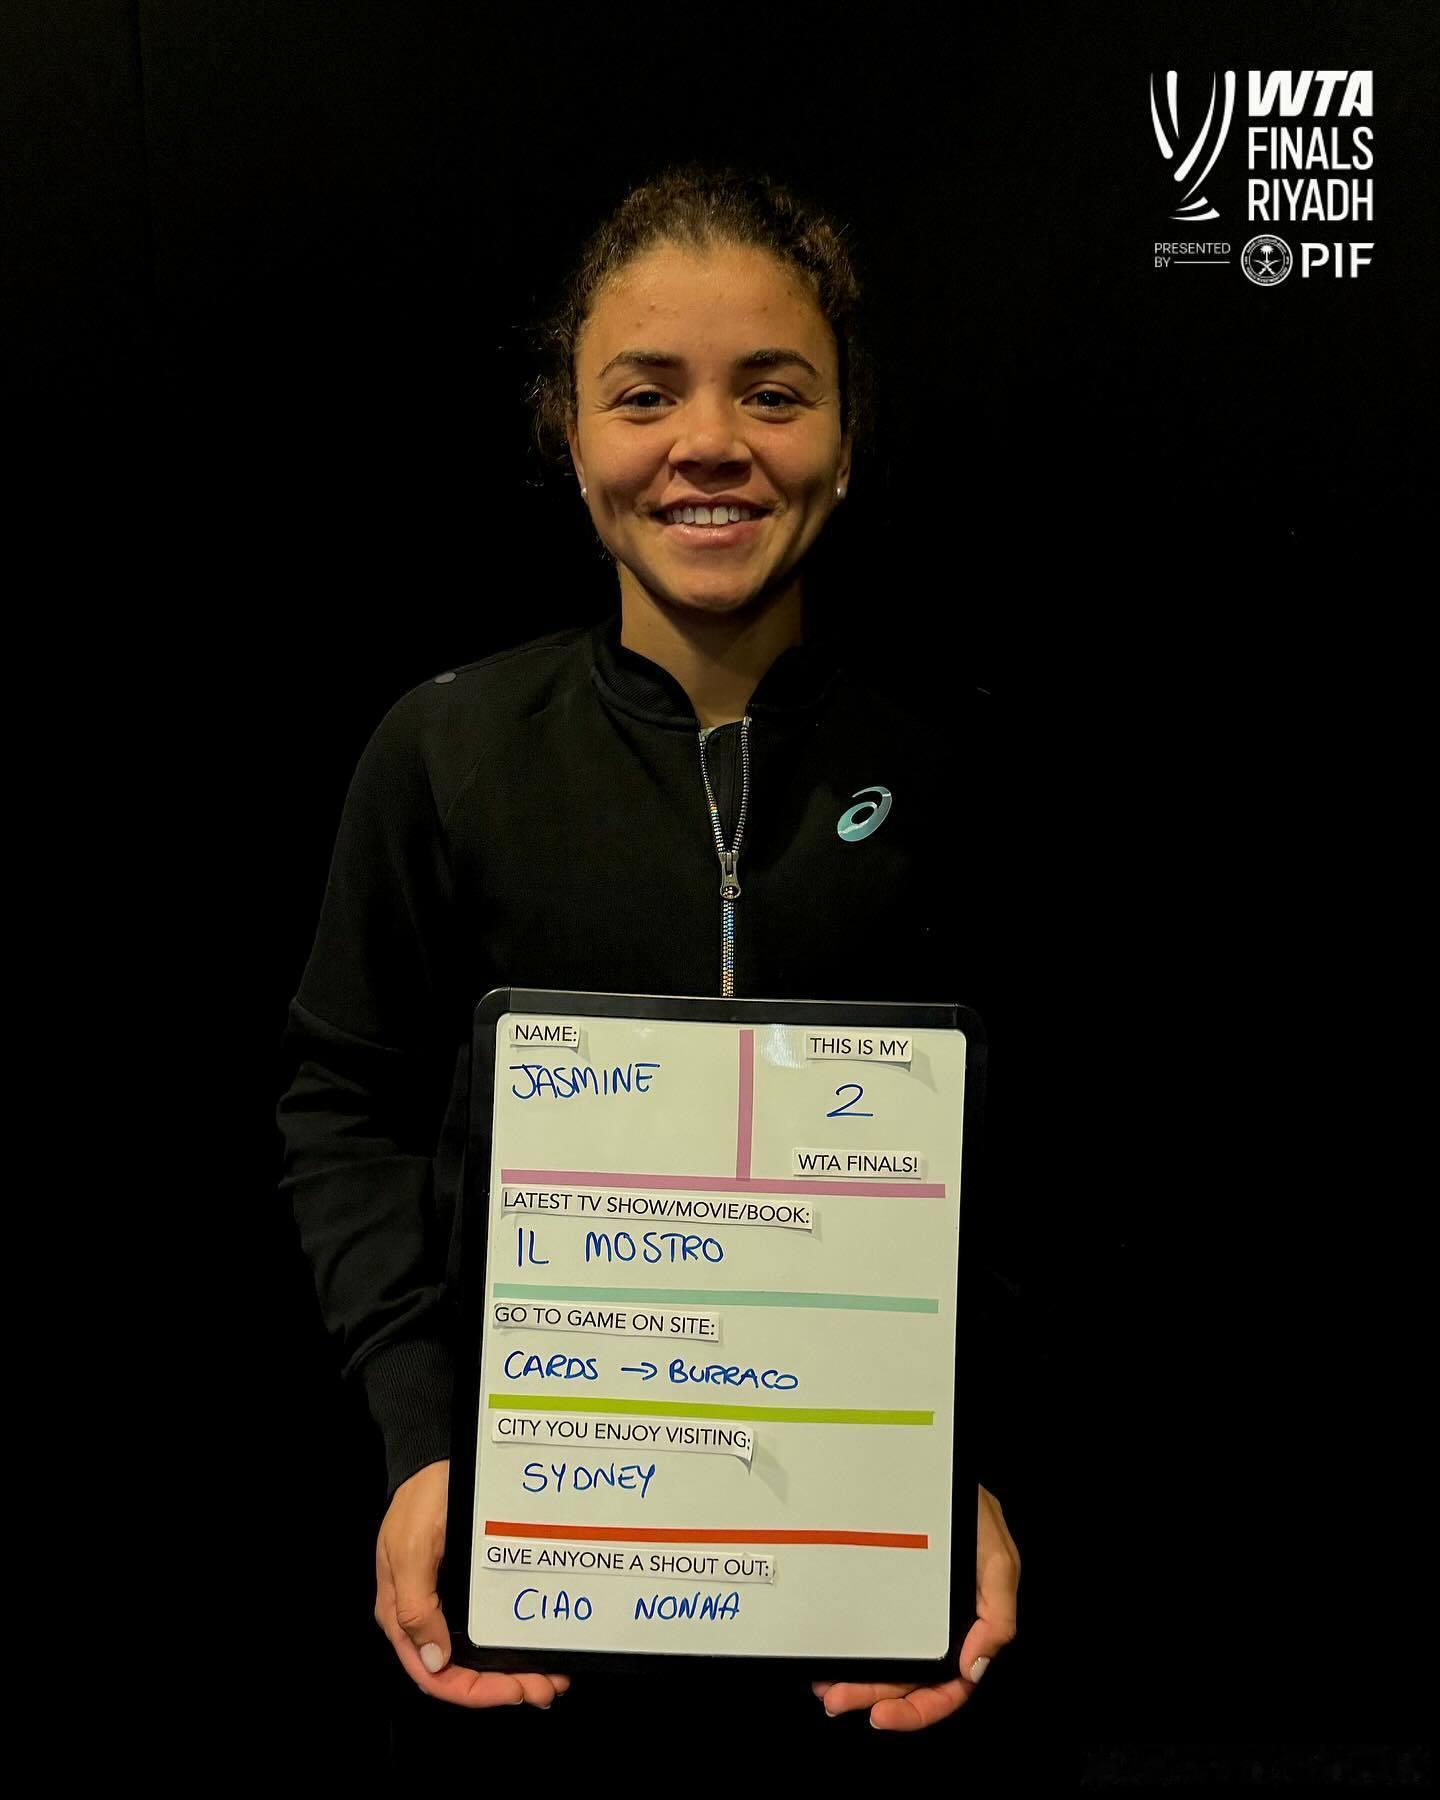 WTA
FINALS
RIYADH
PRESENTED
BY
PIF
NAME:
JASMINE
THIS IS MY
2
WTA FINALS!
LATEST TV SHOW/MOVIE/BOOK:
IL MOSTRO
GO TO GAME ON SITE:
CARDS → BURRACO
CITY YOU ENJOY VISITING:
SYDNEY
GIVE ANYONE A SHOUT OUT:
CIAO NONNA